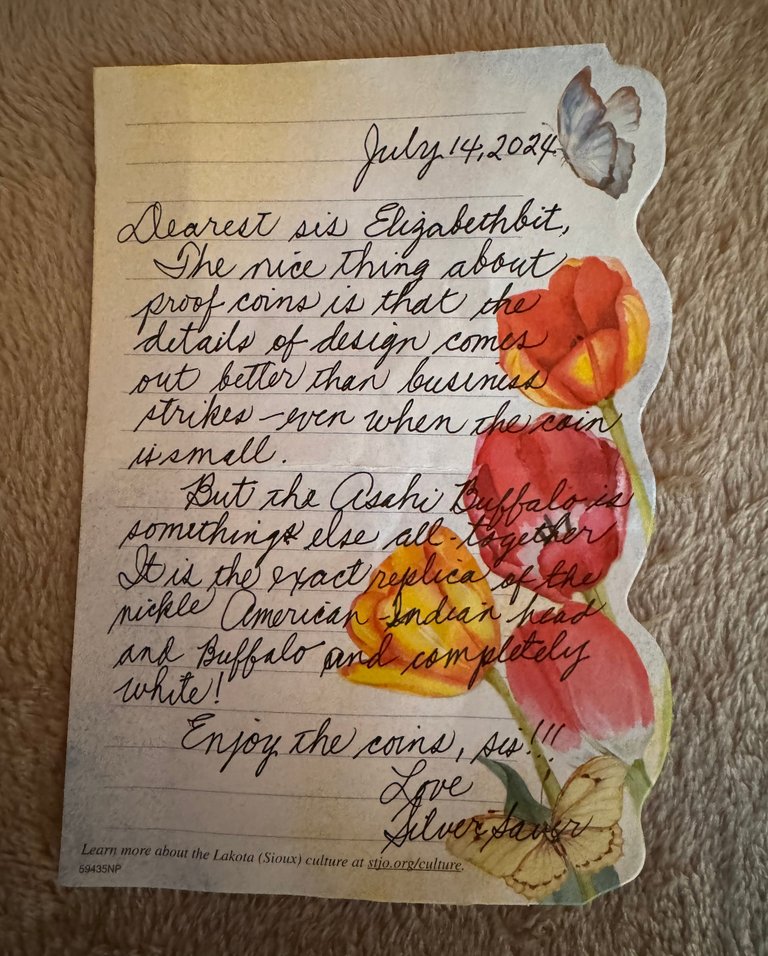 July 14, 2024
Dearest sis Elizabethbit,
The nice thing about
proof coins is that the
details of design comes
out better than business
strikes - even when the coin
is small.
But the Asahi Buffalo is
somethings else all-together
It is the exact replica of the
nickle American-Indian head
and Buffalo and completely
white!
Enjoy the coins, sis!!!
Love
Silver Saver
Learn more about the Lakota (Sioux) culture at stjo.org/culture.
59435NP